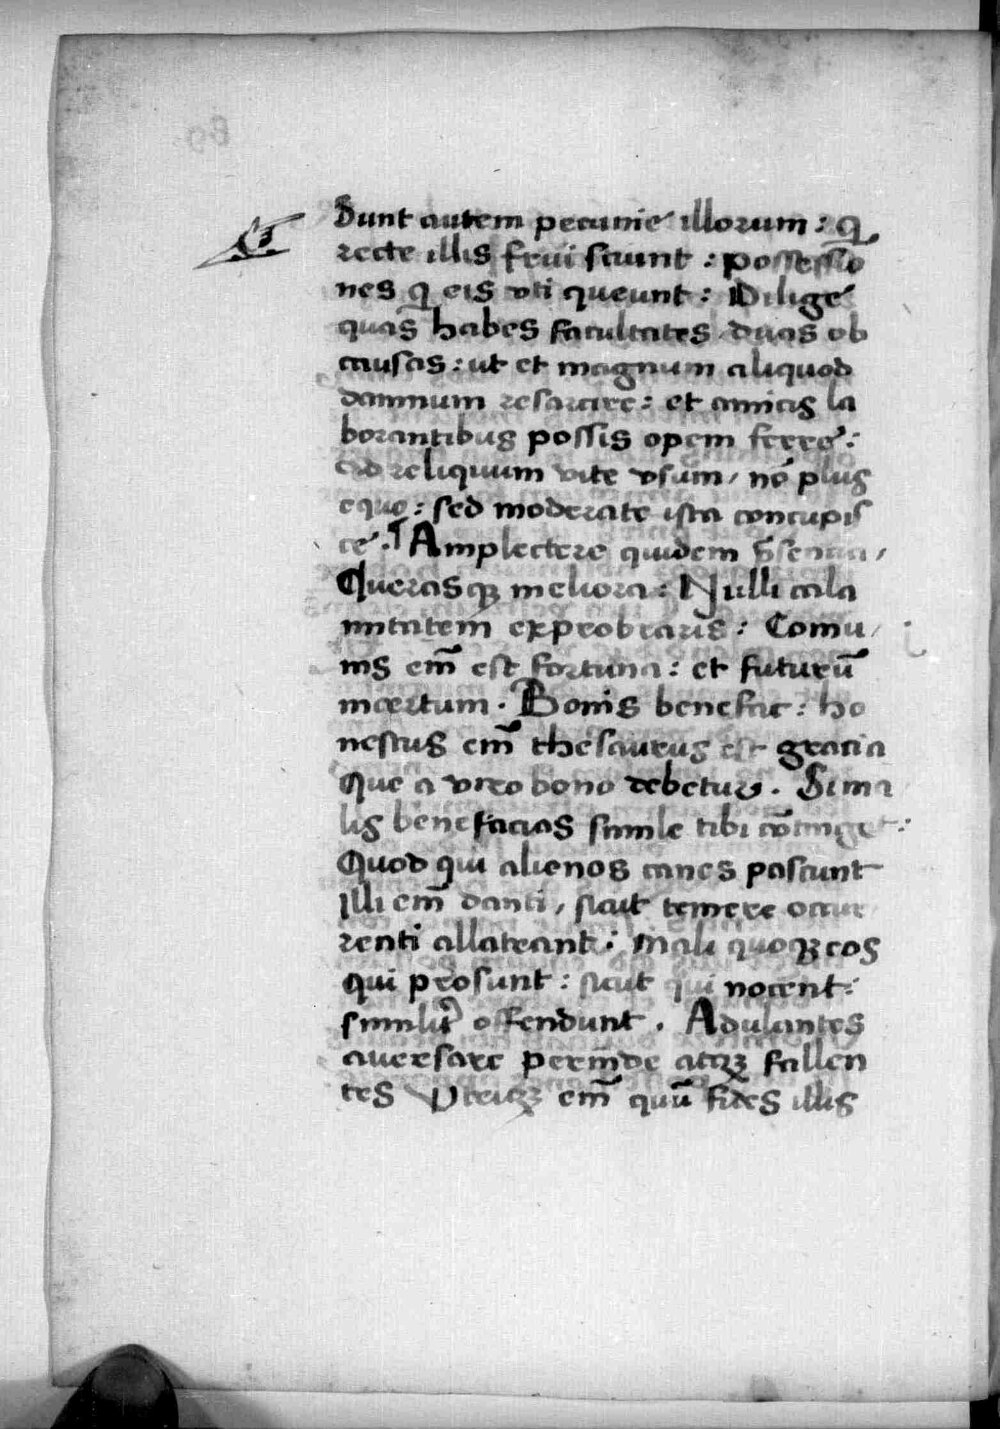 Sunt autem pecunie illorum : q̲
recte illis frui sciunt : possessio
nes q̲ eis vti queunt : Dilige
quas habes facultates duas ob
causas : ut et magnum aliquod
damnum resarcire : et amicis la
borantibus possis opem ferre :
ad reliquum vite vsum / nō plus
equo : sed moderate ista concupis
ce . ¶ Amplectere quidem p̄sentia /
Querasqꝫ meliora : Nulli cala
mitatem exprobraris : Comu /
nis em̄ est fortuna : et futurū
incertum . Bonis benefac : ho
nestus em̄ thesaurus est gracia
Que a viro bono debetur . Si ma
lis benefacias simile tibi cōtinget :
Quod qui alienos canes pascunt
Illi em̄ danti / sicut temere occur
renti allatrant : Mali quoqꝫ eos
qui prosunt : sicut qui nocent :
similit᷑ offendunt . Adulantes
aversare perinde atqꝫ fallen
tes Vterqꝫ em̄ quū fides illis